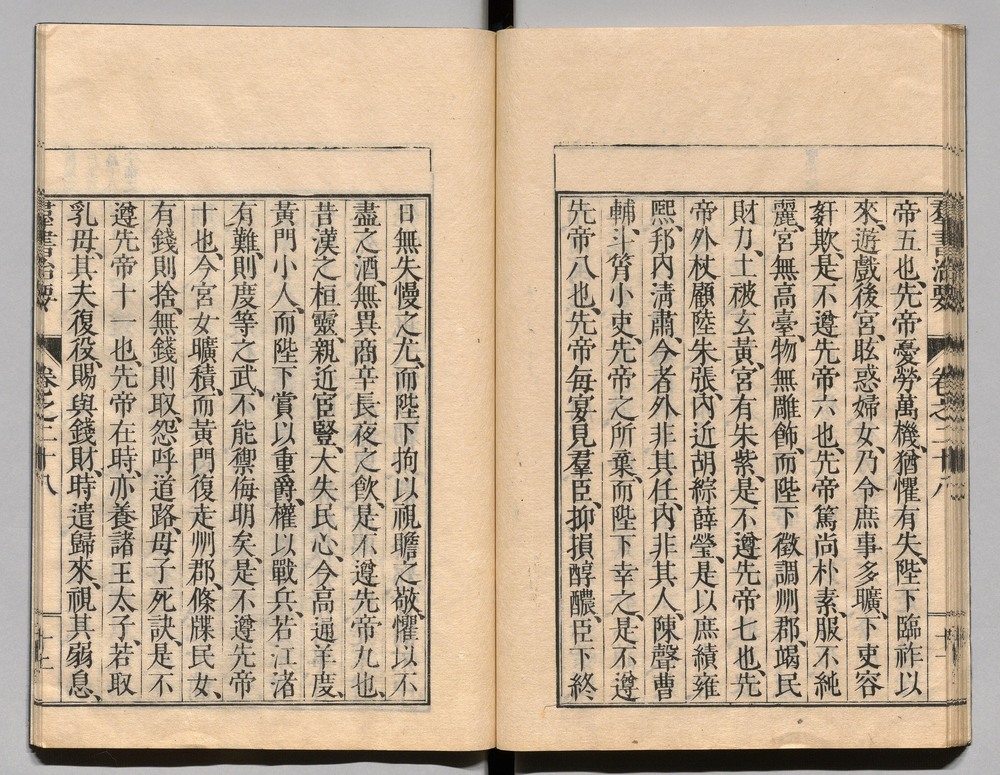 帝五也、先帝憂勞萬機、猶懼有失、陛下臨祚以
來、遊戲後宮、眩惑婦女、乃令庶事多曠、下吏容
姧欺、是不遵先帝六也、先帝篤尚朴素、服不純
麗、宮無高臺、物無雕飾、而陛下徵調州郡、竭民
財力、土被玄黃、宮有朱紫、是不遵先帝七也、先
帝外杖顧陸朱張、內近胡綜薛瑩、是以庶績雍
熙、邦內清肅、今者外非其任、內非其人、陳聲曹
輔、斗筲小吏、先帝之所棄、而陛下幸之、是不遵
先帝八也、先帝每宴見羣臣、抑損醇醲、臣下終
日無失慢之尤、而陛下拘以視瞻之敬、懼以不
盡之酒、無異商辛長夜之飲、是不遵先帝九也、
昔漢之桓靈、親近宦豎、大失民心、今高通羊度、
黃門小人、而陛下賞以重爵、權以戰兵、若江渚
有難、則度等之武、不能禦侮明矣、是不遵先帝
十也、今宮女曠積、而黃門復走州郡、條牒民女、
有錢則捨、無錢則取、怨呼道路、母子死訣、是不
遵先帝十一也、先帝在時、亦養諸王太子、若取
乳母、其夫復役、賜與錢財、時遣歸來、視其弱息、
羣書治要 卷之二十八